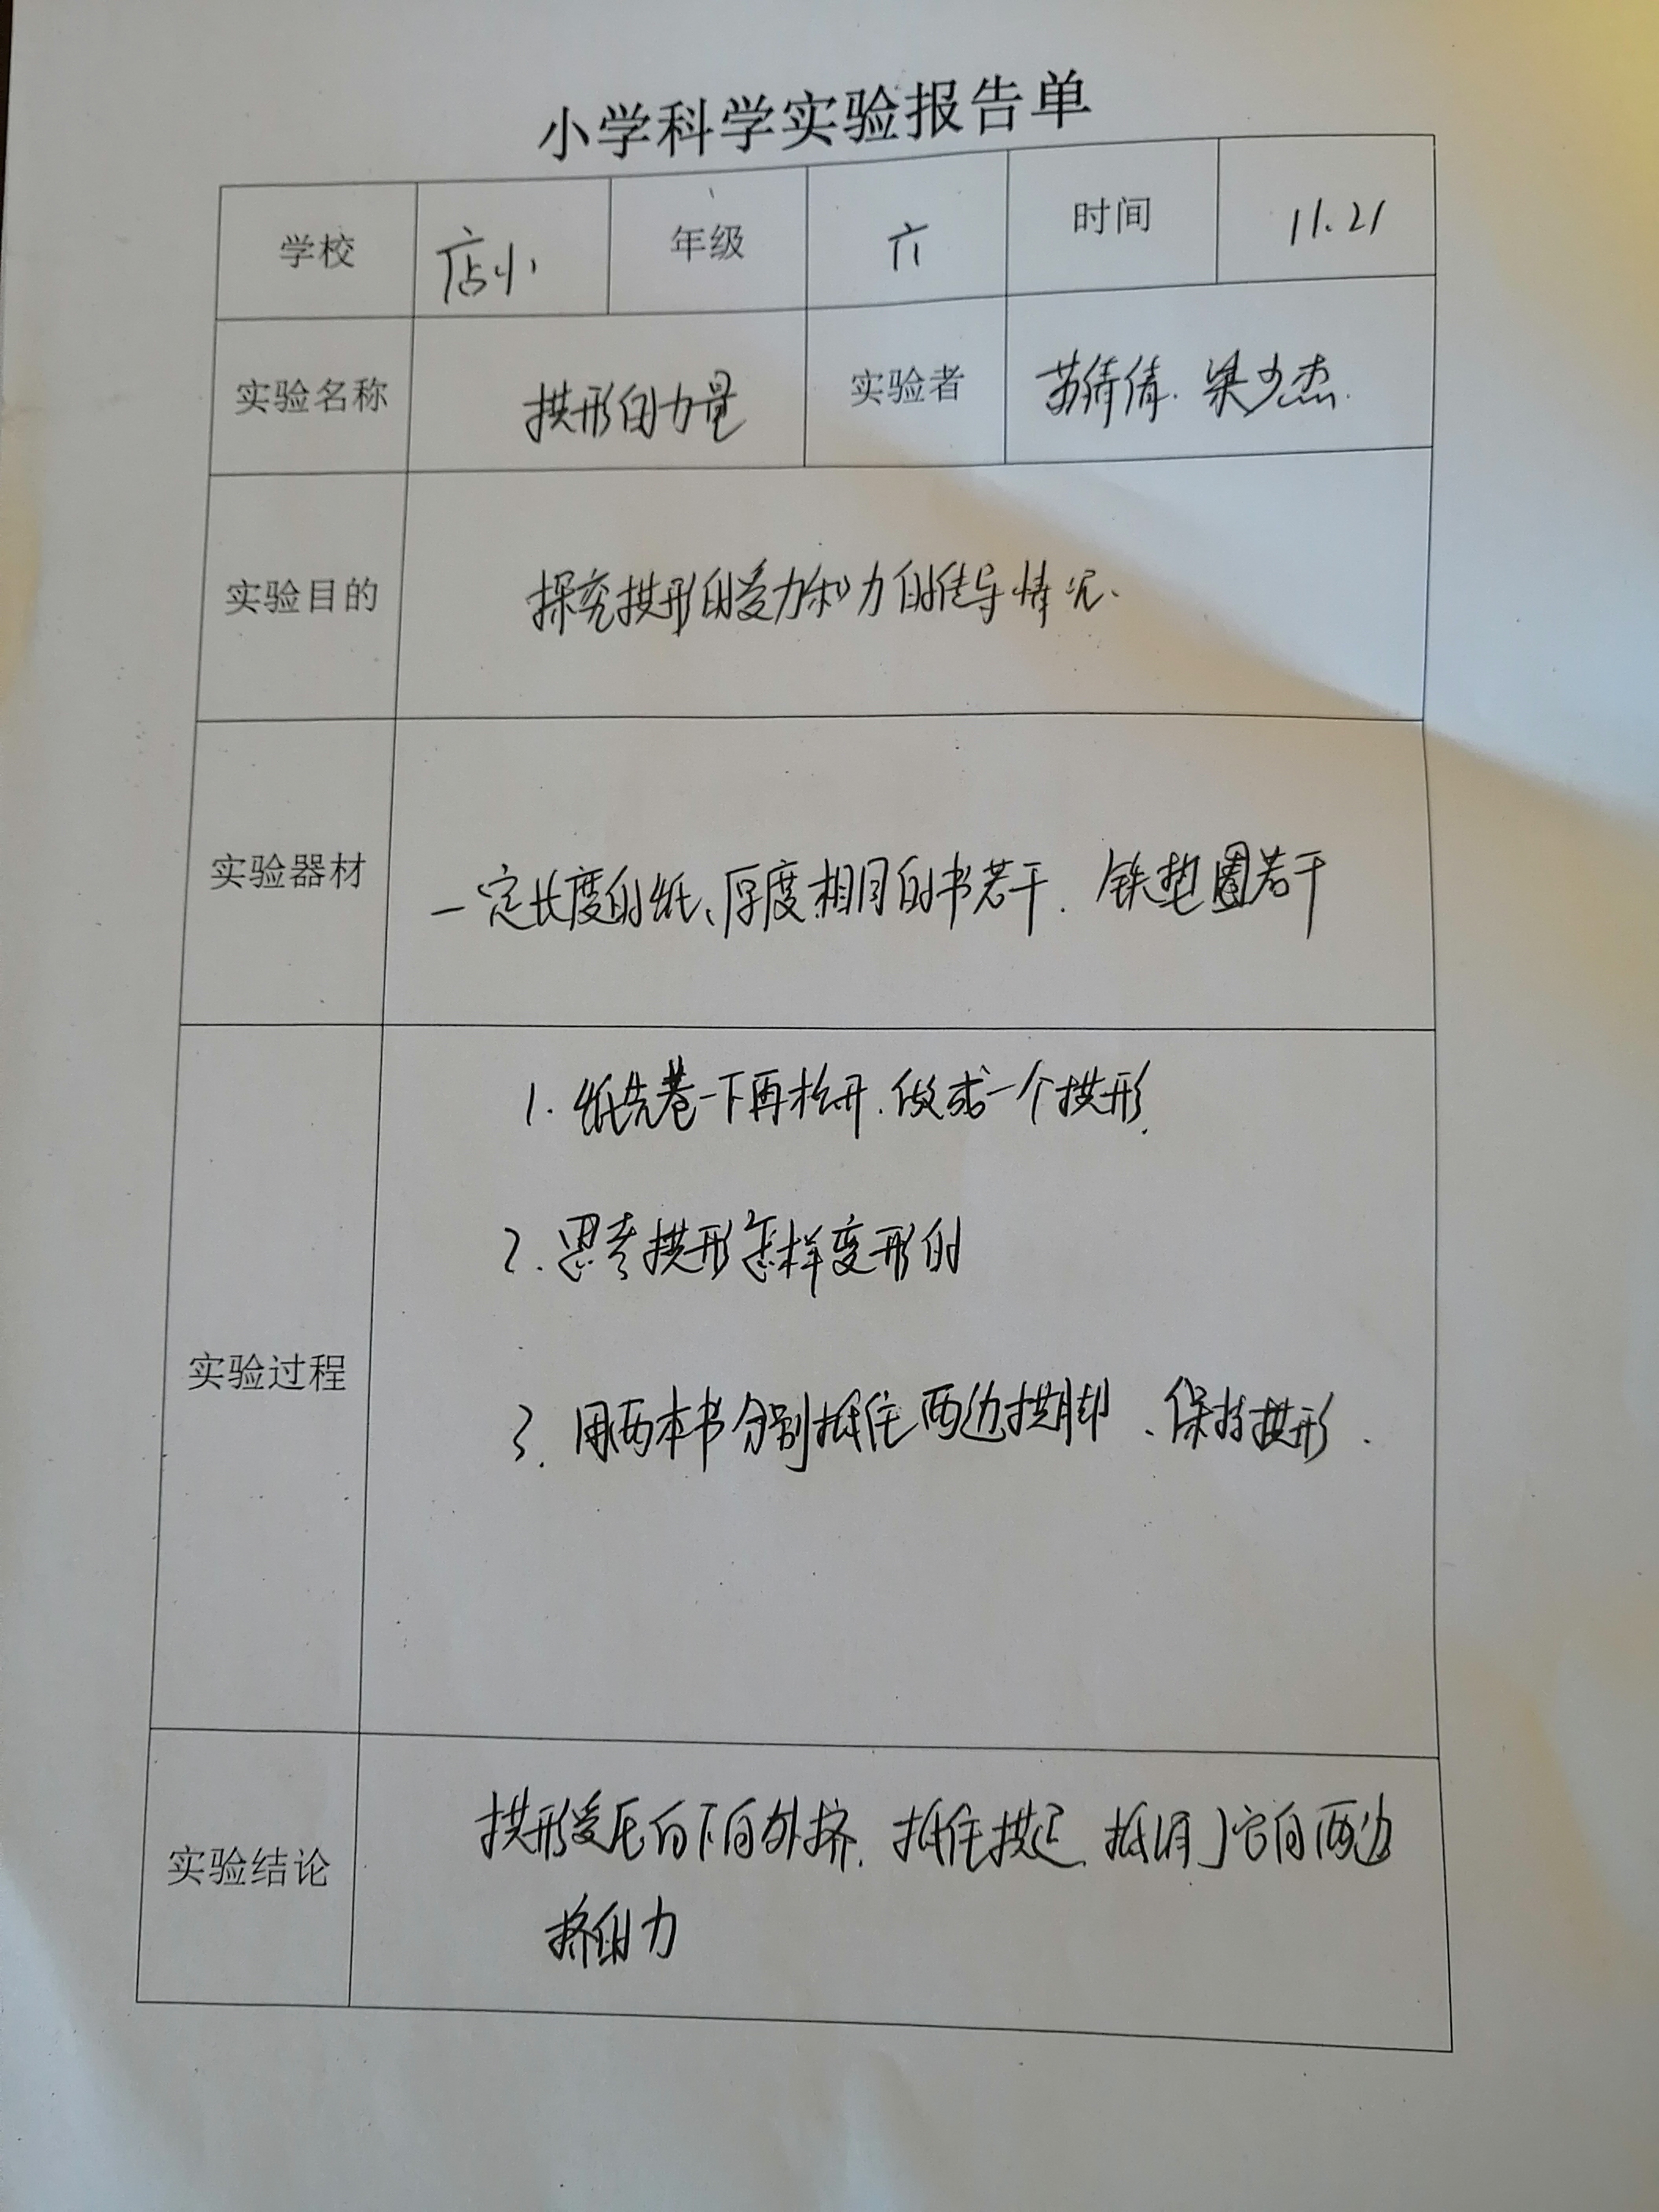 小学科学实验报告单
学校 店小 年级 六 时间 11.21
实验名称 拱形的力量 实验者 苏倩倩. 梁少杰.
实验目的 探究拱形的受力和力的传导情况.
实验器材 一定长度的纸、厚度相同的书若干. 铁垫圈若干
1. 纸先卷一下再松开.做成一个拱形.
2. 思考拱形怎样变形的
实验过程
3. 用两本书分别抵住两边拱脚、保持拱形.
实验结论 拱形受压向下向外挤. 抵住拱足. 抵消了它向两边
挤的力